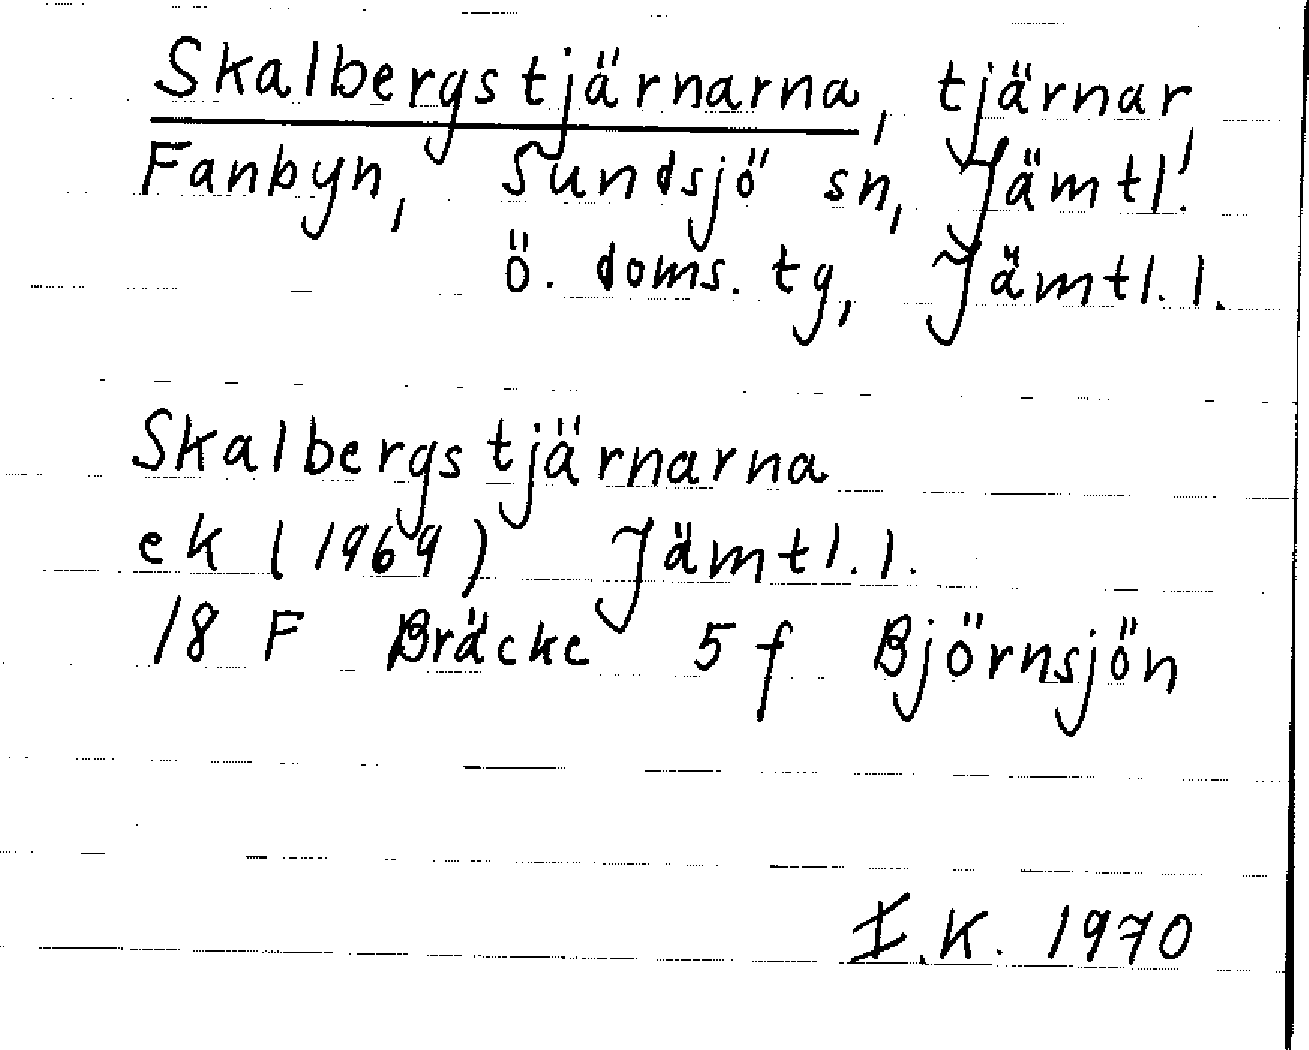 Skalbergstjärnarna, tjärnar,
Fanbyn, Sundsjö sn, Jämtl.
ö. doms. tg, Jämtl. l.
Skalbergstjärnarna
ek (1969) Jämtl. l.
18 F Bräcke 5 f Björnsjön
I.K. 1970